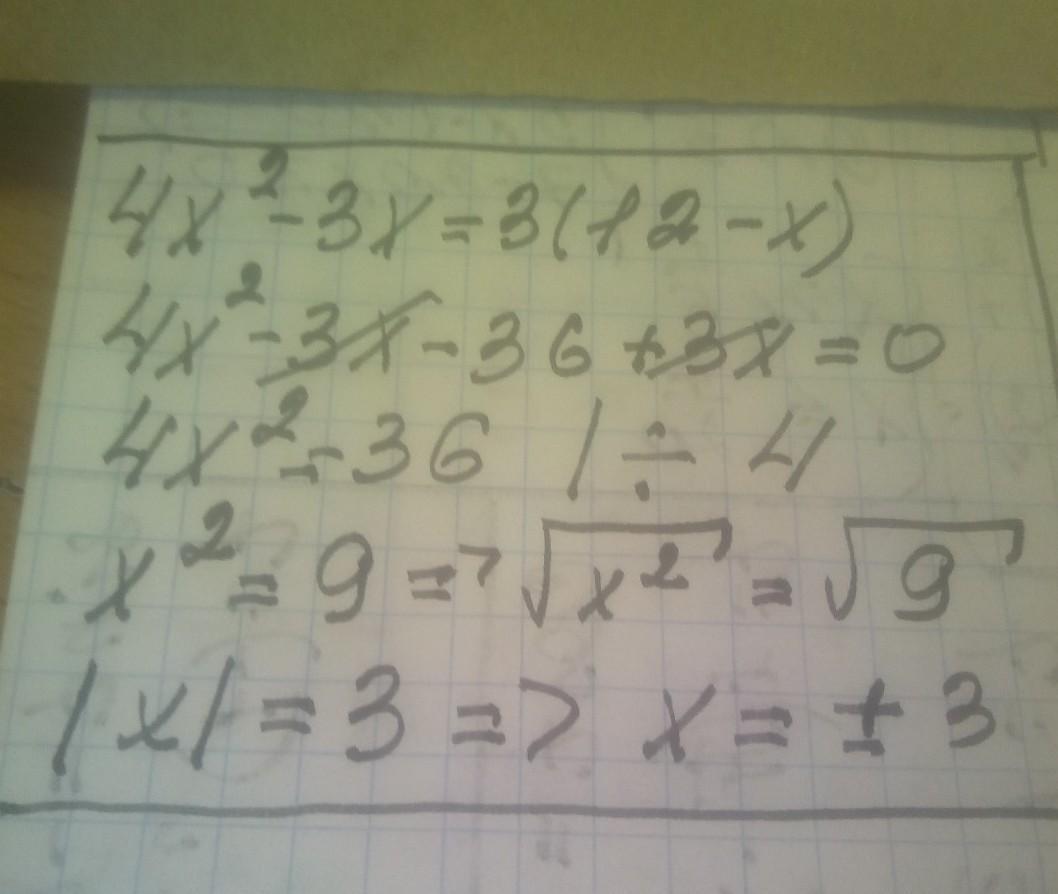 4x²-3x=3(12-x)
4x²-3x-36+3x=0
4x²=36 | ÷ 4
x²=9 => √x² = √9
|x|=3 => x=±3